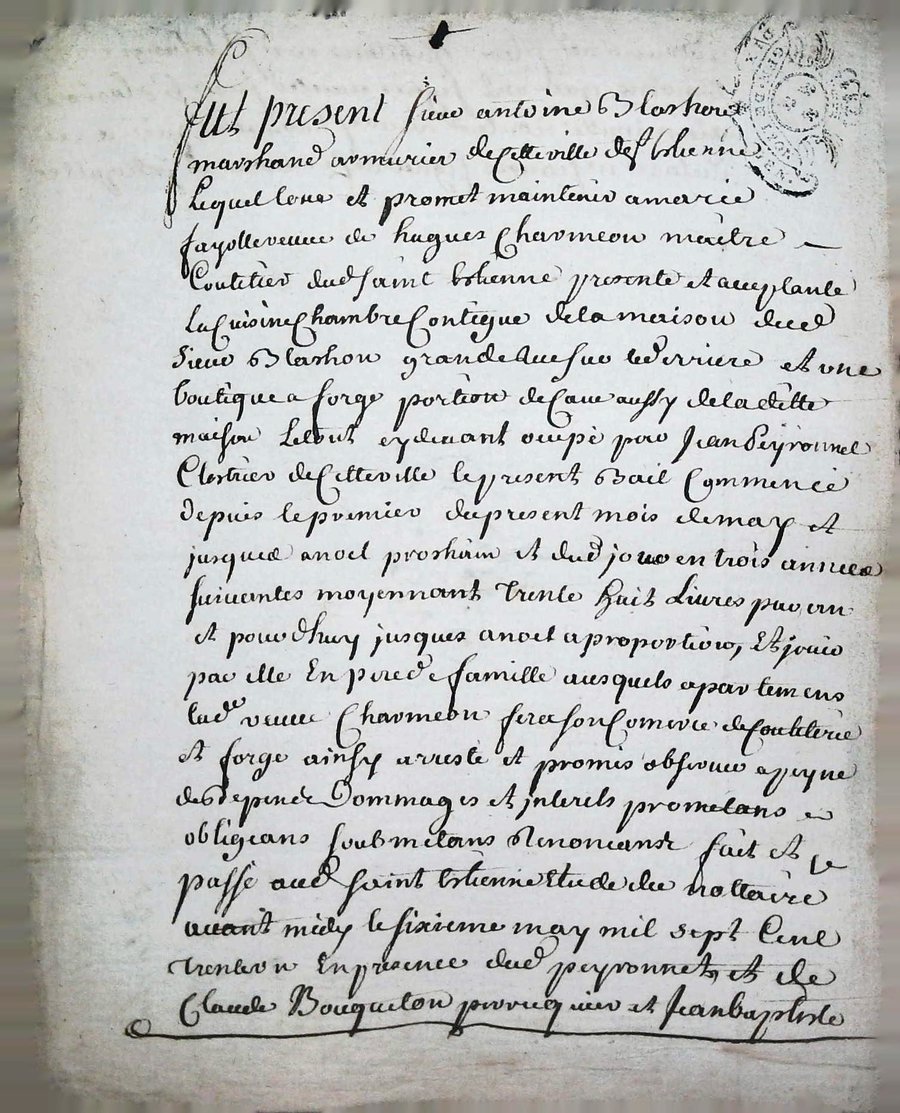 Fut present sieur antoine Blachon
marchand armurier de cette ville de st Etienne
Lequel loue et promet maintenir a marie
fayolle veuve de hugues Charmeon maitre
Coutelier dud saint Etienne presente et acceptante
La Cuisine Chambre Contigue de la maison dud
Sieur Blachon grande rue sur le derriere et une
boutique a forge portion de Cave aussy de la ditte
maison Le tout cy devant occupé par Jean Peyronnet
Cloutrier de Cette ville le present Bail Commencé
depuis le premier du present mois de may et
jusques a noel prochain et dud jour en trois années
suivantes moyennant trente huit Livres par an
et pour d'huy jusques a noel a proportion, Et jouir
par elle En pere de famille ausquels apartemens
lade veuve Charmeon fera son Comerce de Coutelerie
et forge ainsy arresté et promis observer a peyne
de dépens Dommages et interets prometans
obligeans soubmetans Renoncans fait et
passé aud saint Etienne Etude du nottaire
avant midy le sixieme may mil sept Cent
trente un En presence dud peyronnet, et de
Claude Bouqueton perruquier et Jean baptiste